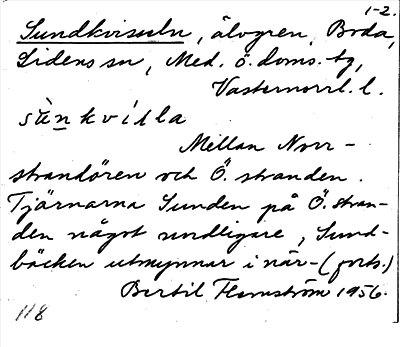 1-2.
Sundkvisuln, älvgren, Boda,
Lidens sn, Med. ö. doms. tg,
Västernorrl. l.
sùnkvilla
Mellan Norr-
strandören och Ö. stranden.
Tjärnarna Sunden på Ö. stran-
den något nordligare, Sund-
bäcken utmynnar i när- (forts.)
Bertil Flemström 1956.
118